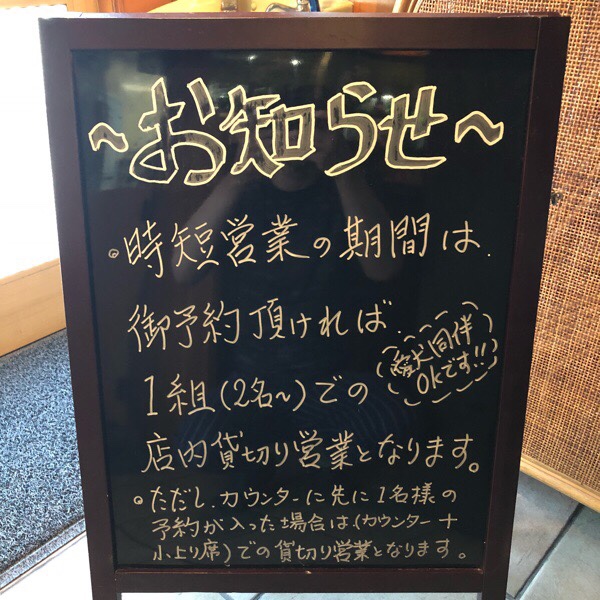 〜お知らせ〜
。時短営業の期間は、
御予約頂ければ、
1組(2名〜)での
愛犬同伴
OKです!!
店内貸切り営業となります。
。ただし、カウンターに先に1名様の
予約が入った場合は(カウンター+
小上り席)での貸切り営業となります。